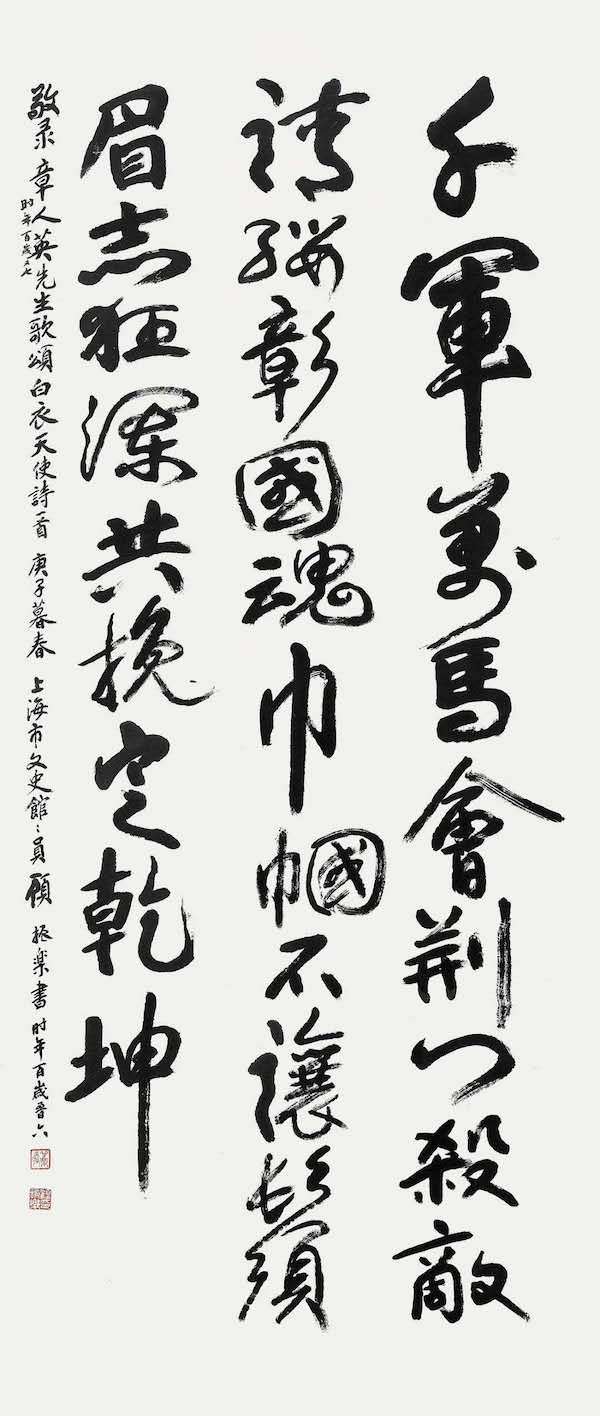 千軍萬馬會荆门殺敵
請纓彰國魂巾幗不讓鬚
眉志狂瀾共挽定乾坤
敬录章人英先生歌頌白衣天使詩一首 庚子暮春 上海市文史館〻員顧振樂書 时年百歲晋六
时年百歲七